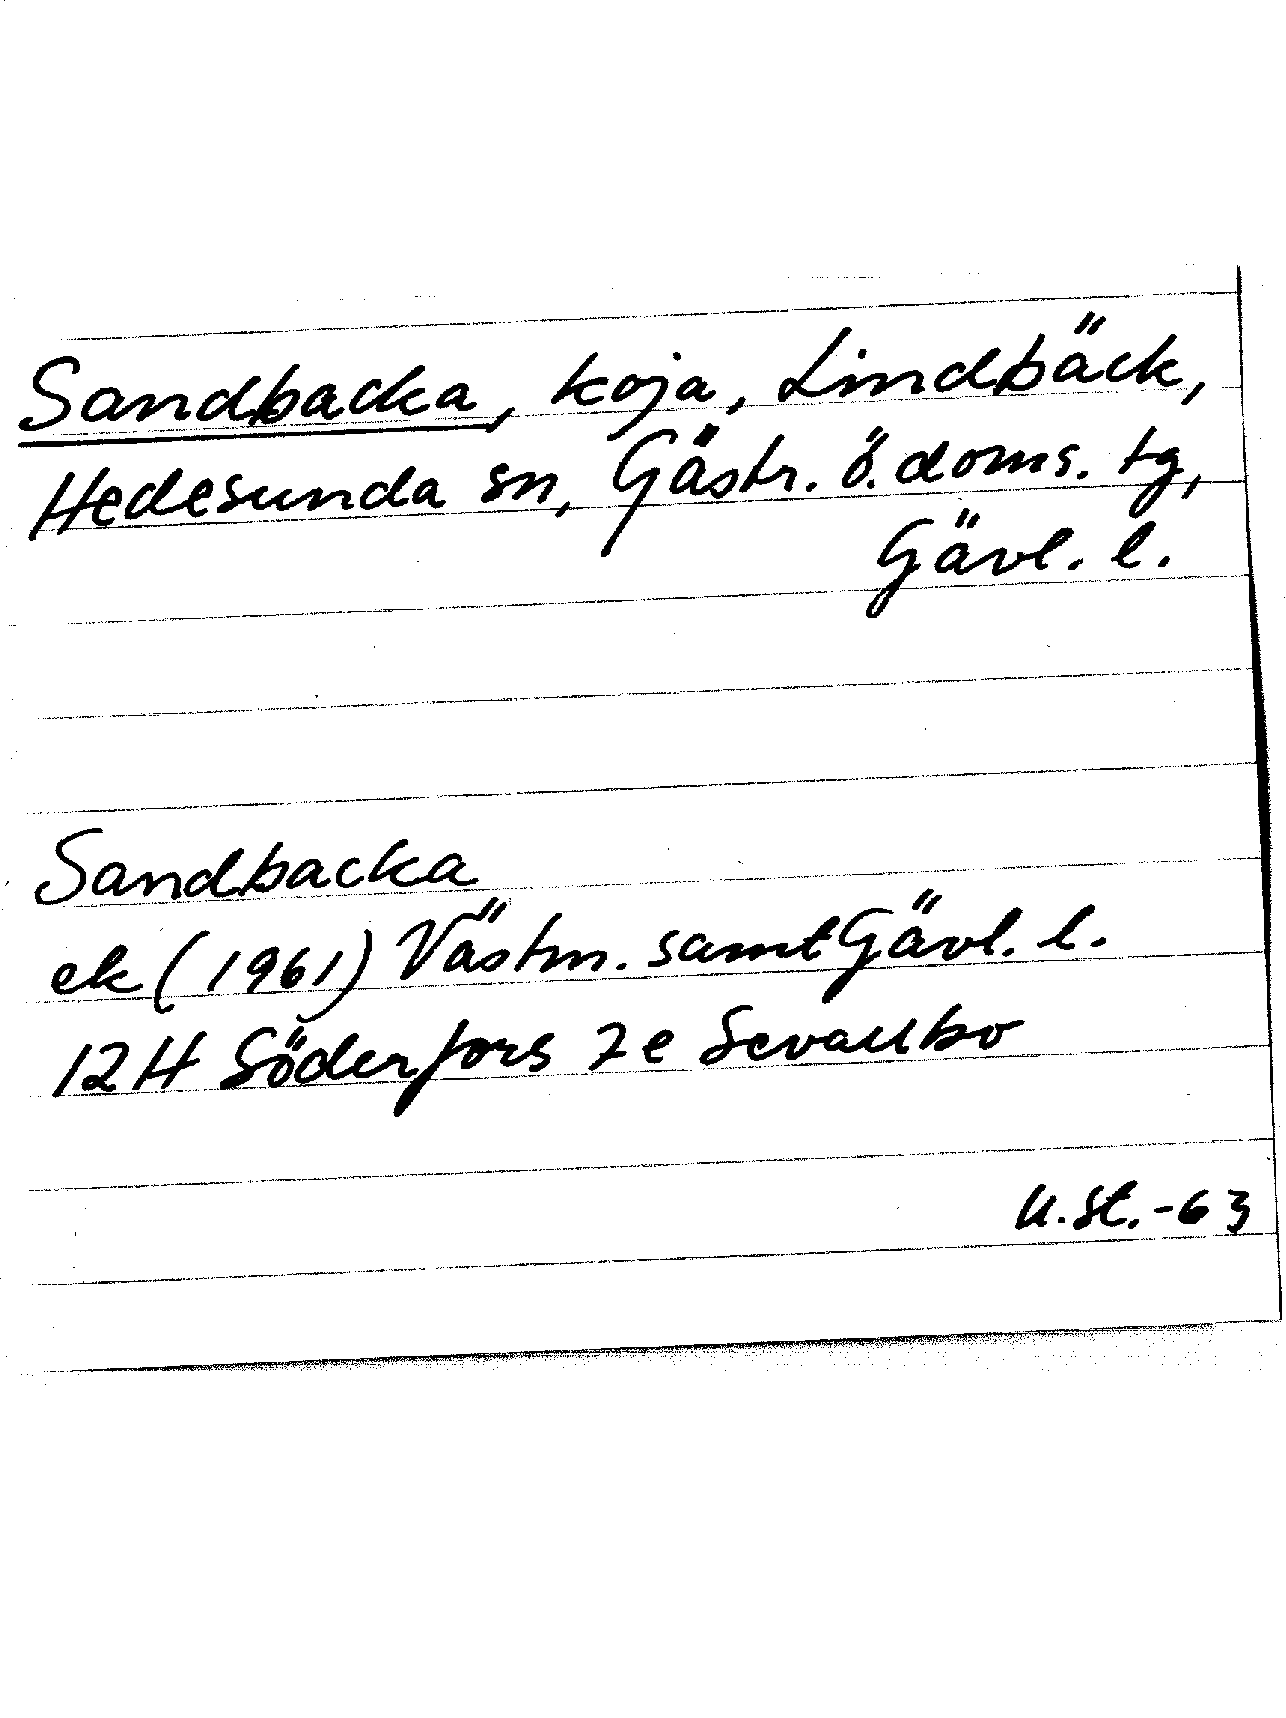 Sandbacka, koja, Lindbäck,
Hedesunda sn, Gästr. ö. doms. tg,
Gävl. l.
Sandbacka
ek (1961) Västm. samt Gävl. l.
12H Söderfors 7e Sevallbo
U.St.-63